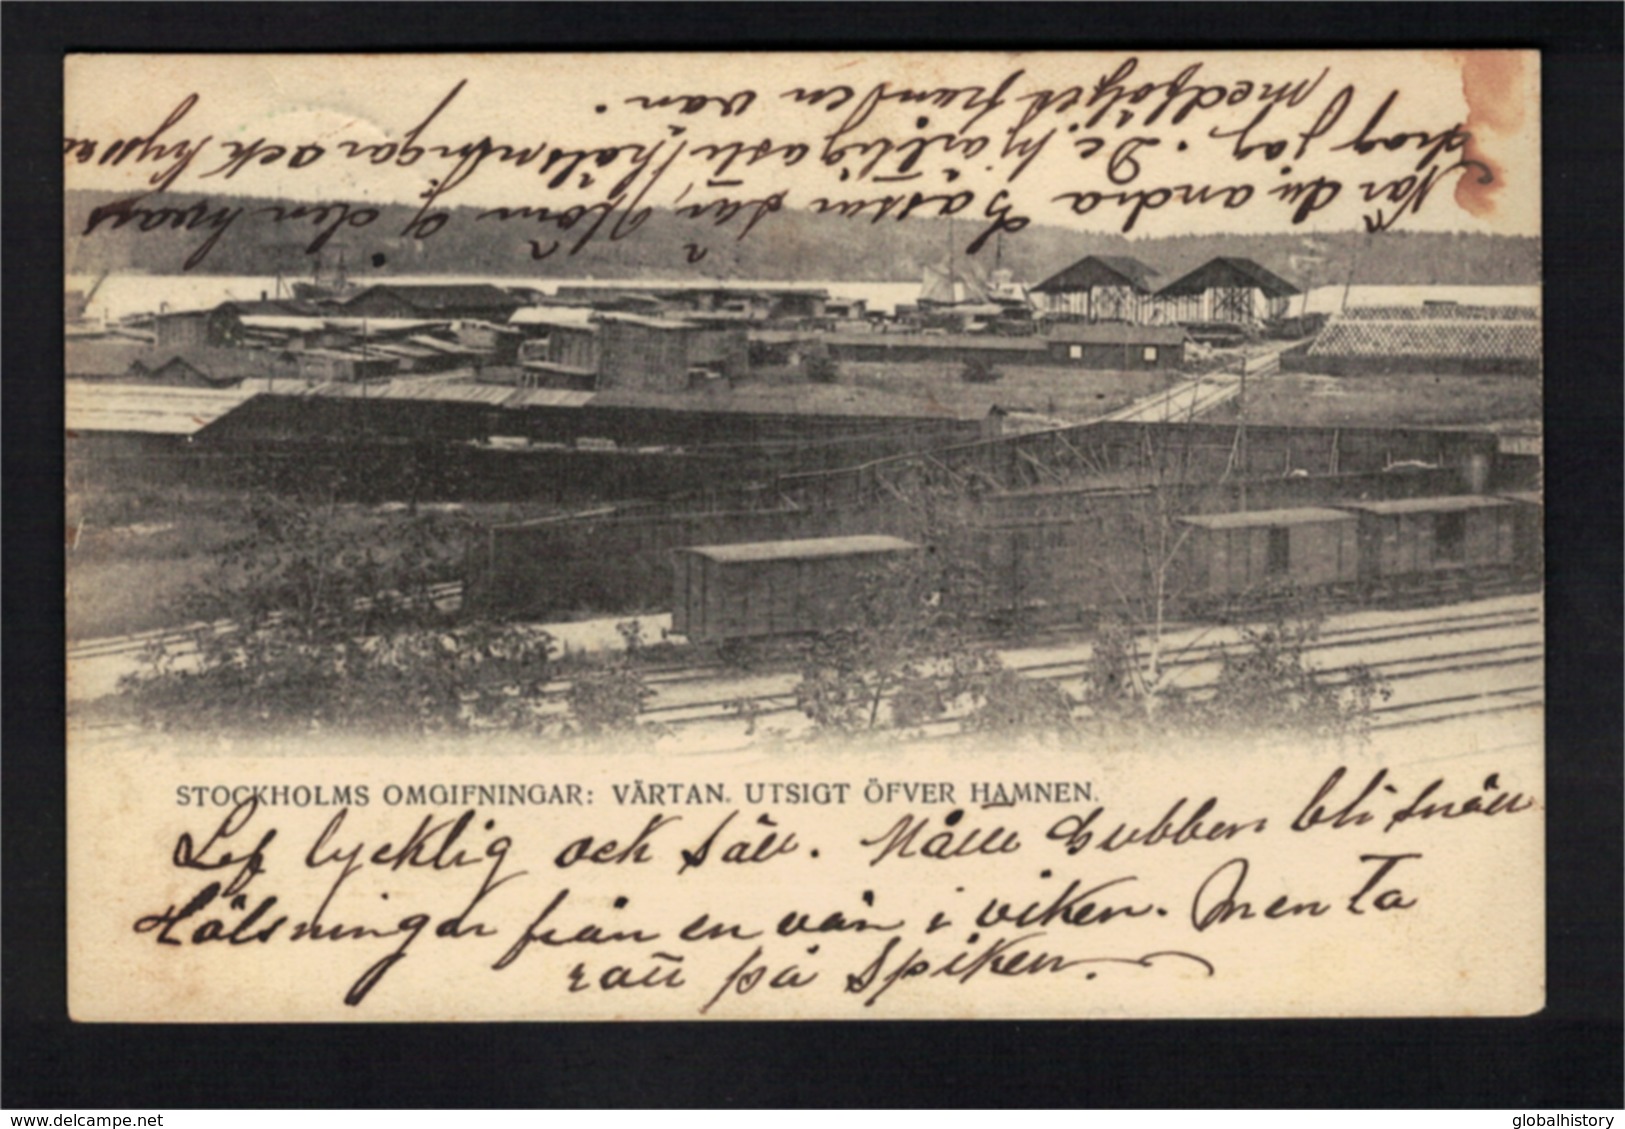 När du andra
Bästar din, som af den hvars
drog jag. De hjärtligaste hälsningar och kyssar
medföljer från den van.
STOCKHOLMS OMGIFNINGAR: VÄRTAN. UTSIGT ÖFVER HAMNEN.
Lef lycklig och säll. Måtte Gubben bli snäll
Hälsningar från en vän i viken. Men Ta
rätt på spiken.
www.delcampe.net
globalhistory